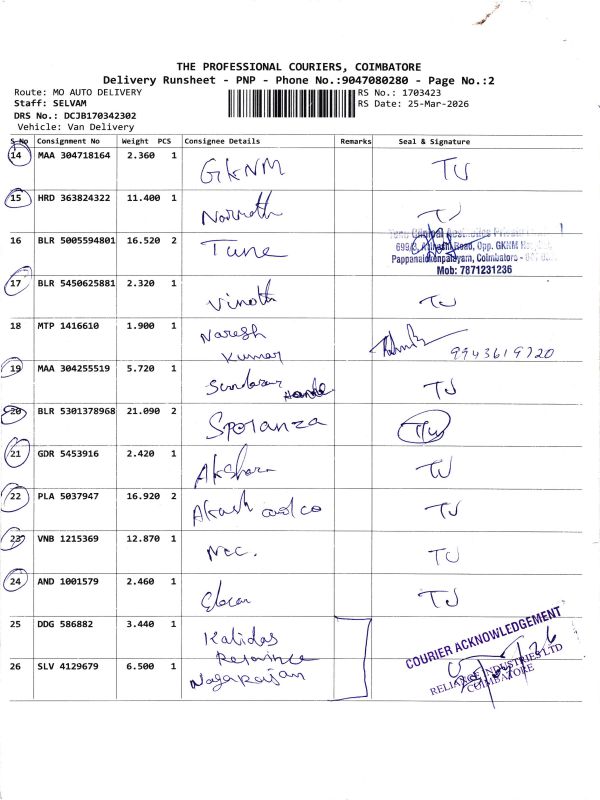 THE PROFESSIONAL COURIERS, COIMBATORE
Delivery Runsheet - PNP - Phone No.:9047080280 - Page No.:2
Route: MO AUTO DELIVERY RS No.: 1703423
Staff: SELVAM RS Date: 25-Mar-2026
DRS No.: DCJB170342302
Vehicle: Van Delivery
S.No Consignment No Weight PCS Consignee Details Remarks Seal & Signature
14 MAA 304718164 2.360 1 GKNM TU
15 HRD 363824322 11.400 1 TU
16 BLR 5005594801 16.520 2 Tune
Road, Opp. GKNM
Pappanaickenpalayam, Coimbatore -
Mob: 7871231236
17 BLR 5450625881 2.320 1 Vinoth TU
18 MTP 1416610 1.900 1 Naresh
Kumar 9943619720
19 MAA 304255519 5.720 1 TU
20 BLR 5301378968 21.090 2 Speranza TU
21 GDR 5453916 2.420 1 Akshara TU
22 PLA 5037947 16.920 2 Akash TU
23 VNB 1215369 12.870 1 Ncc. TU
24 AND 1001579 2.460 1 TU
25 DDG 586882 3.440 1 Kalidas
COURIER ACKNOWLEDGEMENT
26 SLV 4129679 6.500 1 Nagarajan
RELIANCE INDUSTRIES LTD
COIMBATORE